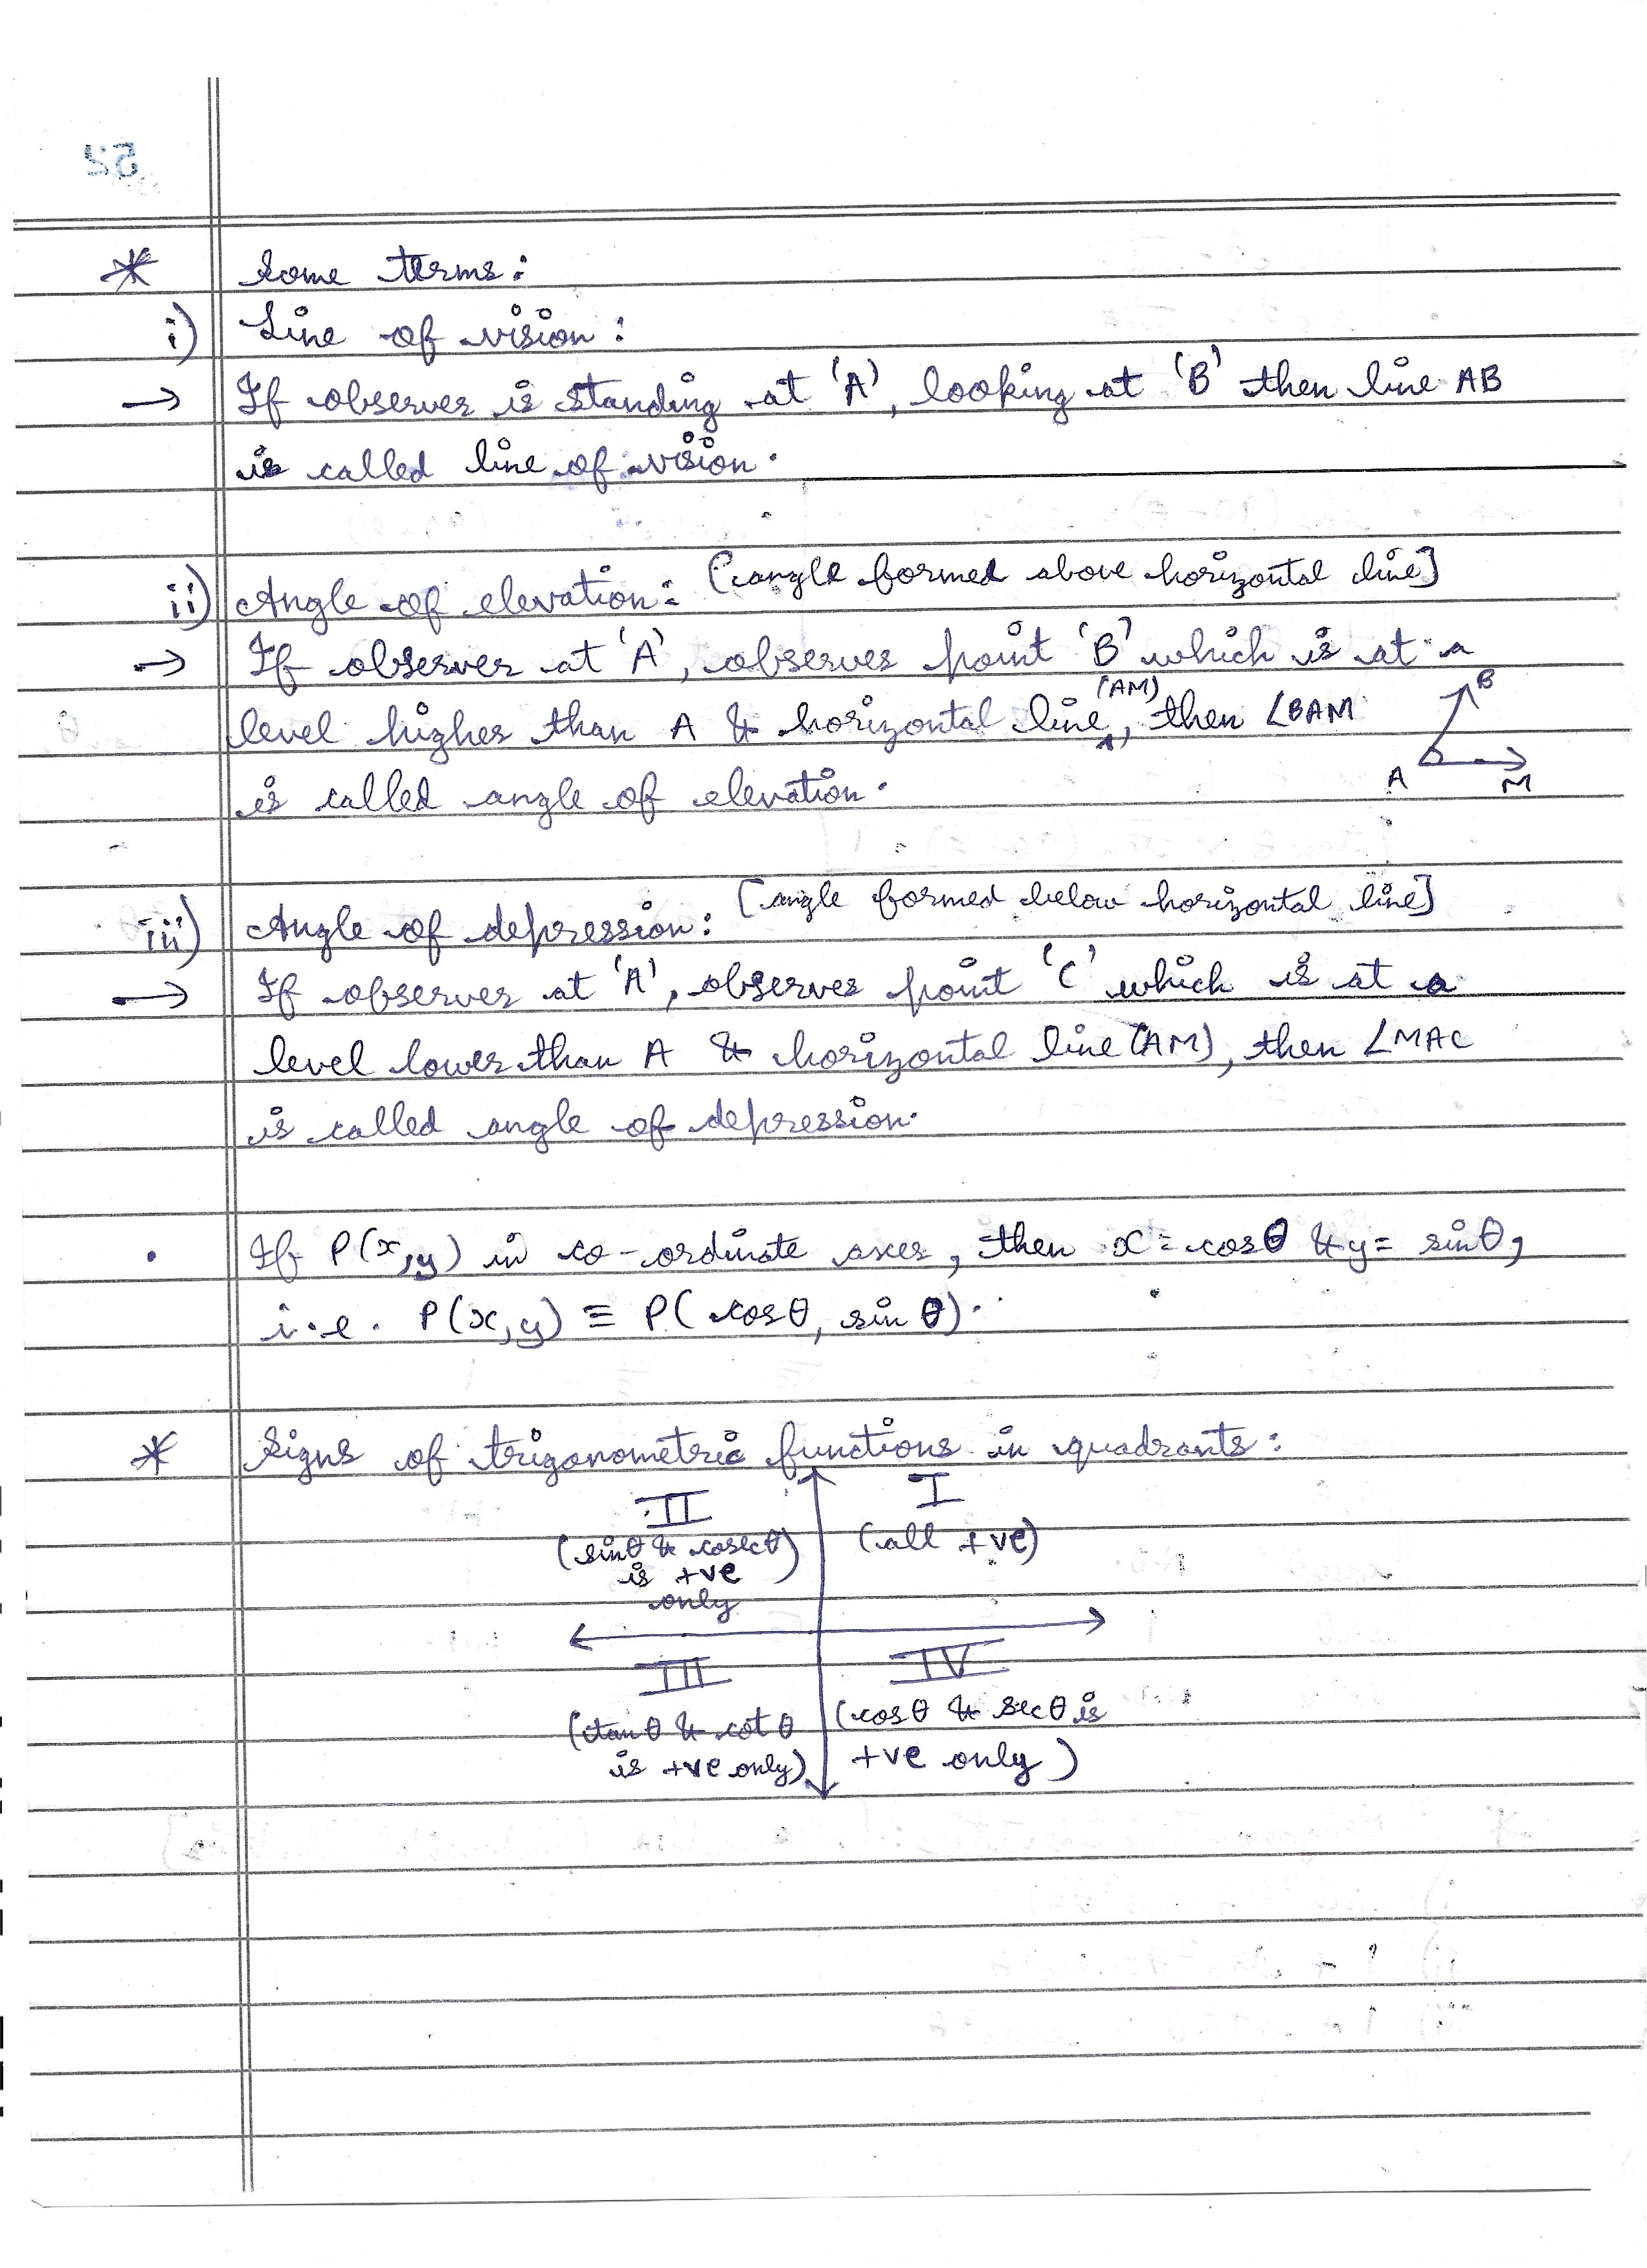 * Some terms:
i) Line of vision:
→ If observer is standing at 'A', looking at 'B' then line AB
is called line of vision.
ii) Angle of elevation: [angle formed above horizontal line]
→ If observer at 'A', observes point 'B' which is at a
level higher than A & horizontal line (AM), then ∠BAM
is called angle of elevation.
B
A M
iii) Angle of depression: [angle formed below horizontal line]
→ If observer at 'A', observes point 'C' which is at a
level lower than A & horizontal line (AM), then ∠MAC
is called angle of depression.
• If P(x,y) in co-ordinate axes, then x = cosθ & y = sinθ,
i.e. P(x,y) ≡ P(cosθ, sin θ).
* Signs of trigonometric functions in quadrants:
II
(sinθ & cosecθ)
is +ve
only
I
(all +ve)
III
(tanθ & cot θ
is +ve only)
IV
(cosθ & secθ is
+ve only)